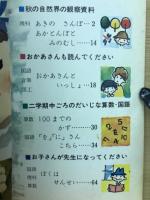 ■秋の自然界の観察資料
理科 あきの さんぽ…2
あかとんぼと
みのむし………14
■おかあさんも読んでください
国語 おかあさんと
いっしょ………18
■二学期中ごろのだいじな算数・国語
算数 100までの
かず…………30
国語 「を」「に」さん
こちら………34
■お子さんが先生になってください
国語 ぼくは
理科
算数 せんせい………64